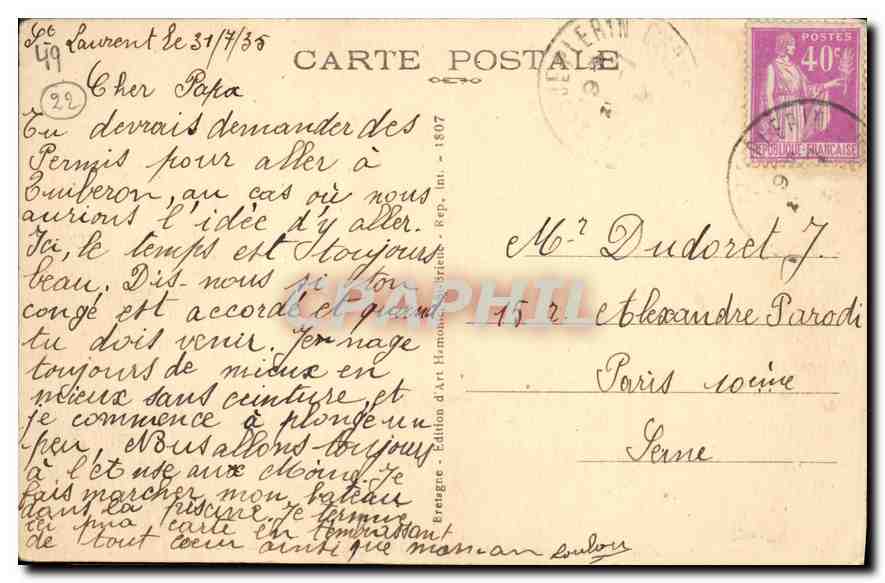 St Laurent le 31/7/35
49
22
CARTE POSTALE
POSTES
40c
REPUBLIQUE FRANCAISE
Cher Papa
Tu devrais demander des
Permis pour aller à
Quiberon, au cas où nous
aurions l'idée d'y aller.
Ici, le temps est toujours
beau. Dis-nous si ton
congé est accordé et quand
tu dois venir. Je nage
toujours de mieux en
mieux sans ceinture, et
je commence à plongé un
peu, Nous allons toujours
à l'étuse aux Moines. Je
fais marcher mon bateau
dans la piscine. Je termine
ici ma carte en t'embrassant
de tout cœur ainsi que maman Loulou
Bretagne - Édition d'Art Hamonic, St-Brieuc - Rep. Int. - 1807
Mr Dudoret J.
15 r Alexandre Parodi
Paris 10ème
Seine
CPAPHIL